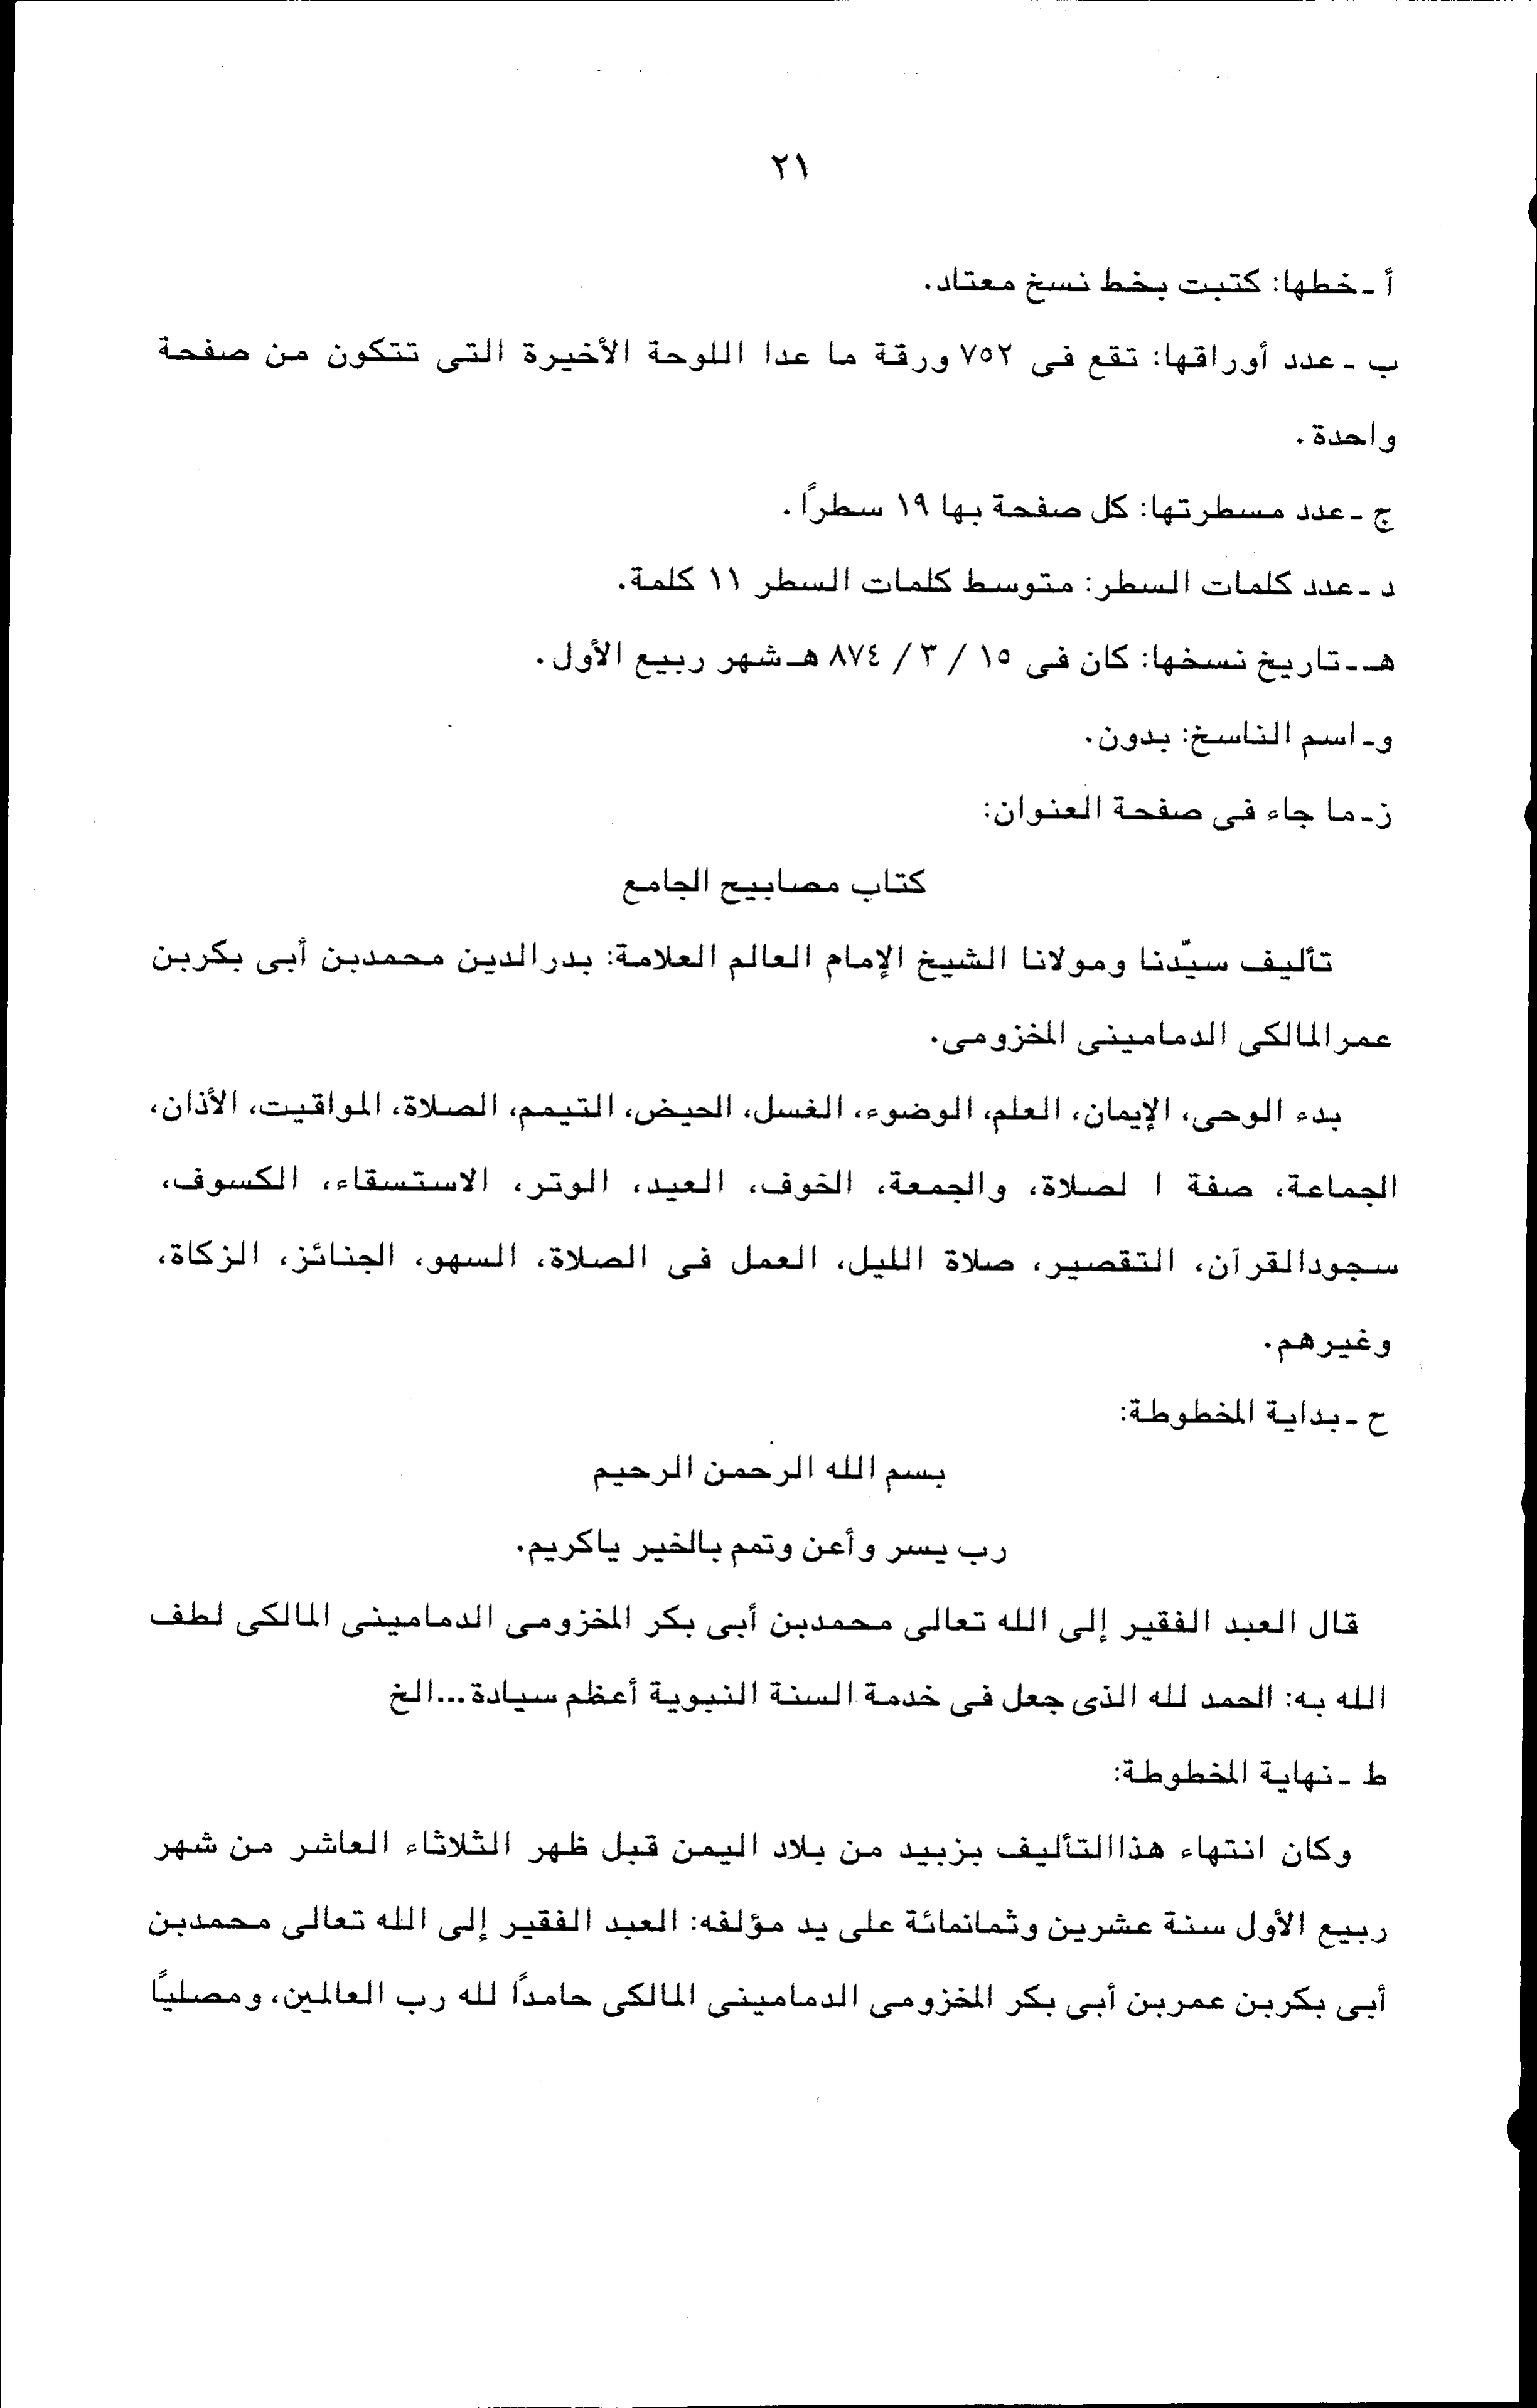 ٢١
أ ـ خطها: كتبت بخط نسخ معتاد.
ب ـ عدد أوراقها: تقع فى ٧٥٢ ورقة ما عدا اللوحة الأخيرة التى تتكون من صفحة
واحدة.
ج ـ عدد مسطرتها: كل صفحة بها ١٩ سطرًا.
د ـ عدد كلمات السطر: متوسط كلمات السطر ١١ كلمة.
هـ ـ تاريخ نسخها: كان فى ١٥ / ٣ / ٨٧٤ هـ شهر ربيع الأول.
و ـ اسم الناسخ: بدون.
ز ـ ما جاء فى صفحة العنوان:
كتاب مصابيح الجامع
تأليف سيّدنا ومولانا الشيخ الإمام العالم العلامة: بدرالدين محمدبن أبى بكربن
عمرالمالكى الدمامينى المخزومى.
بدء الوحى، الإيمان، العلم، الوضوء، الغسل، الحيض، التيمم، الصلاة، المواقيت، الأذان،
الجماعة، صفة ا لصلاة، والجمعة، الخوف، العيد، الوتر، الاستسقاء، الكسوف،
سجودالقرآن، التقصير، صلاة الليل، العمل فى الصلاة، السهو، الجنائز، الزكاة،
وغيرهم.
ح ـ بداية المخطوطة:
بسم الله الرحمن الرحيم
رب يسر وأعن وتمم بالخير ياكريم.
قال العبد الفقير إلى الله تعالى محمدبن أبى بكر المخزومى الدمامينى المالكى لطف
الله به: الحمد لله الذى جعل فى خدمة السنة النبوية أعظم سيادة...الخ
ط ـ نهاية المخطوطة:
وكان انتهاء هذاالتأليف بزبيد من بلاد اليمن قبل ظهر الثلاثاء العاشر من شهر
ربيع الأول سنة عشرين وثمانمائة على يد مؤلفه: العبد الفقير إلى الله تعالى محمدبن
أبى بكربن عمربن أبى بكر المخزومى الدمامينى المالكى حامدًا لله رب العالمين، ومصليًا